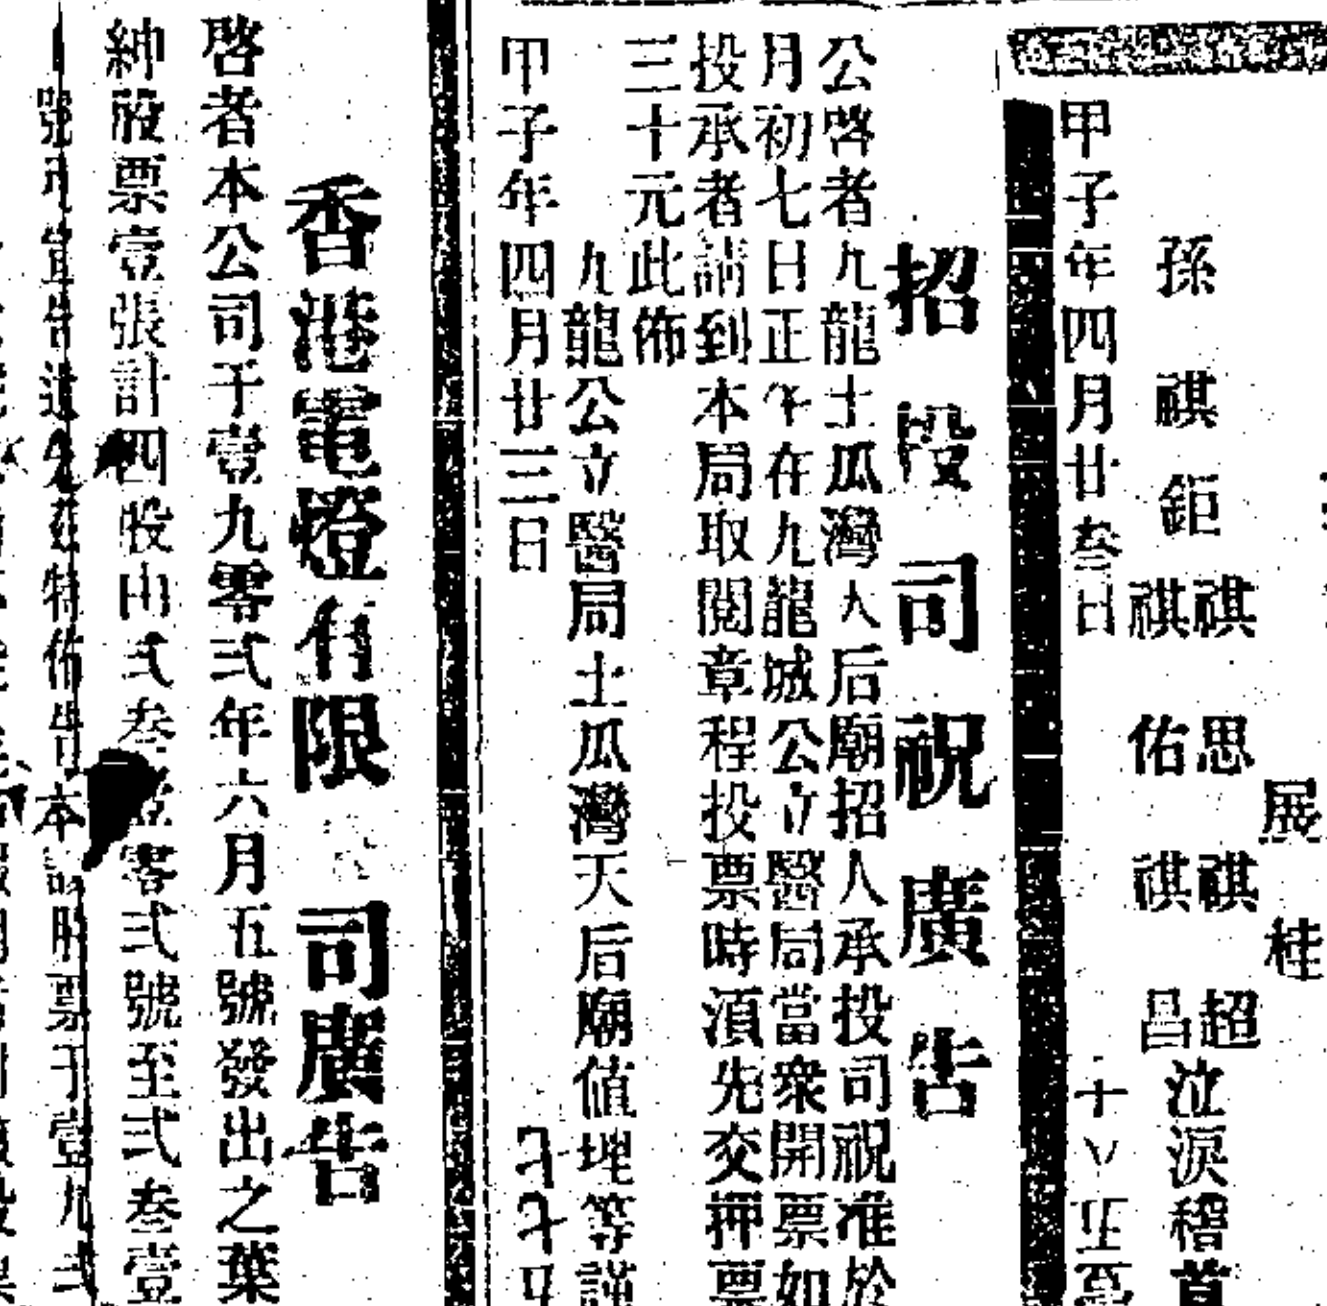 展桂
祺思祺超
孫祺鉅
祺佑祺昌
泣淚稽首
甲子年四月廿叁日
招投司祝廣告
公啓者九龍土瓜灣天后廟招人承投司祝准於
月初七日正午在九龍城公立醫局當衆開票如
投承者請到本局取閱章程投票時須先交押票
三十元此佈
九龍公立醫局土瓜灣天后廟値理等謹
甲子年四月廿三日
香港電燈有限 司廣告
啓者本公司于壹九零弍年六月五號發出之葉
紳股票壹張計四股由弍叁壹零弍號至弍叁壹
特佈告本 股票于壹九弍